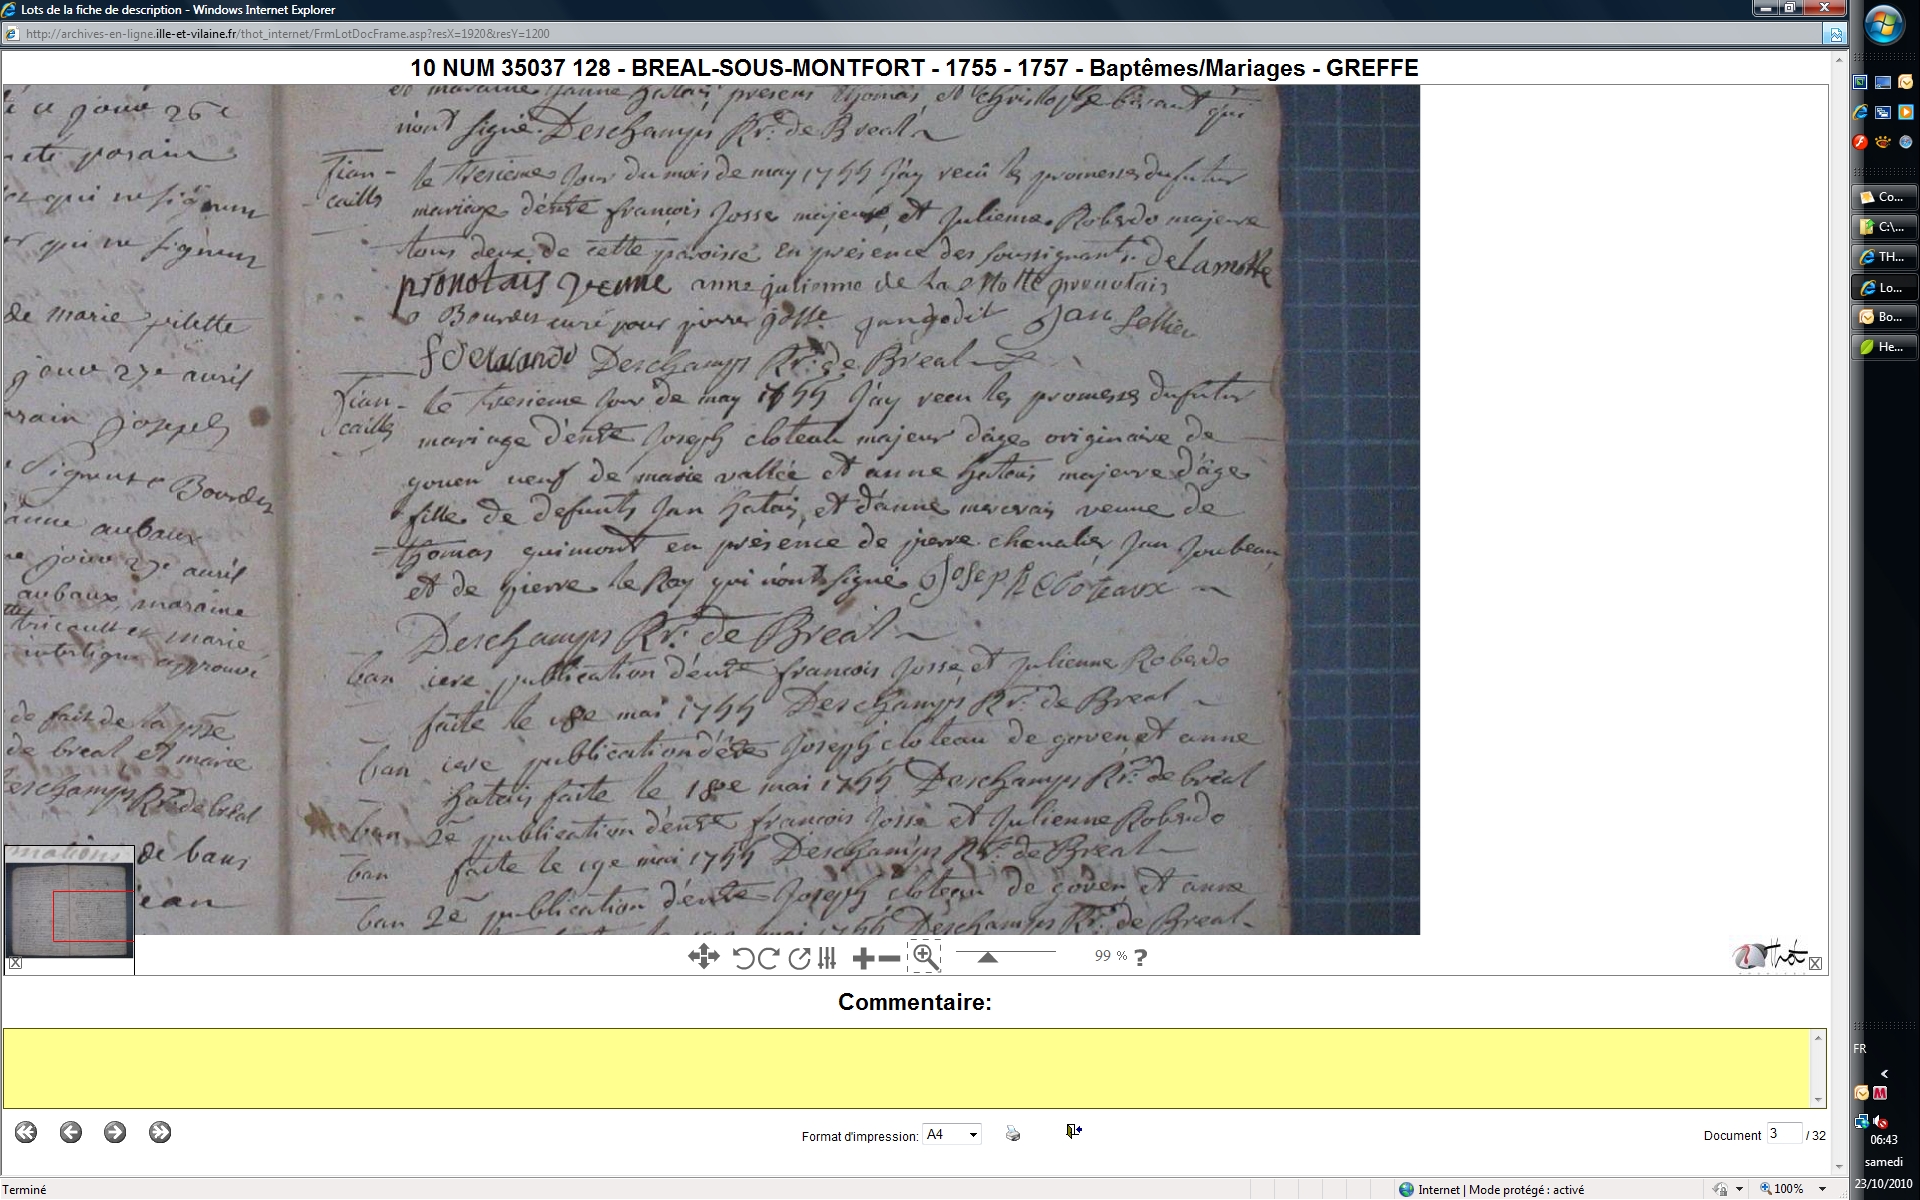 Lots de la fiche de description - Windows Internet Explorer
http://archives-en-ligne.ille-et-vilaine.fr/thot_internet/FrmLotDocFrame.asp?resX=1920&resY=1200
10 NUM 35037 128 - BREAL-SOUS-MONTFORT - 1755 - 1757 - Baptêmes/Mariages - GREFFE
ce jour 26e
qui ne signeur
qui ne signeur
de marie pilette
jour 27e avril
joseph
Bourdes
anne aubaux
jour 27e avril
aubaux, maraine
et marie
interligne approuvé
de fait de la
de breal et marie
Deschamps Rr. de breal
de bans
ean
et maraine janne hatais presens thomas et christophe qui
n'ont signé. Deschamps Rr. de Breal
fian-
cailles
le tresieme jour du mois de may 1755 j'ay recû les promesses du futur
mariage d'entre françois Josse majeur et Julienne Roberdo majeure
tous deux de cette paroisse en présence des soussignants. de Lamotte
pronotais veuve anne julienne de La Motte pronotais
Bourdes curé pour pierre josse jan godit Jan Sellier
Deschamps Rr. de Breal
fian-
cailles
le tresieme jour de may 1755 j'ay recu les promesses du futur
mariage d'entre Joseph cloteau majeur d'âge originaire de
goven veuf de marie vallée et anne hatais majeure d'âge
fille de defunts Jan hatais, et d'anne veuve de
thomas guimont en présence de pierre chevalier Jan Joubeau
et de pierre le Ray qui n'ont signé Joseph Cloteaux
Deschamps Rr. de Breal
ban iere publication d'entre françois Josse et Julienne Roberdo
faite le 18e mai 1755 Deschamps Rr. de Breal
ban iere publication d'entre Joseph cloteau de goven et anne
hatais faite le 18e mai 1755 Deschamps Rr. de breal
ban 2e publication d'entre françois Josse et Julienne Roberdo
ban faite le 19e mai 1755 Deschamps Rr. de Breal
ban 2e publication d'entre Joseph cloteau de goven et anne
mai 1755 Deschamps Rr. de Breal
99 % ?
Thot
Commentaire:
Format d'impression: A4
Document 3 / 32
Terminé
Internet | Mode protégé : activé
100%
Co...
C:\...
TH...
Lo...
Bo...
He...
FR
06:43
samedi
23/10/2010